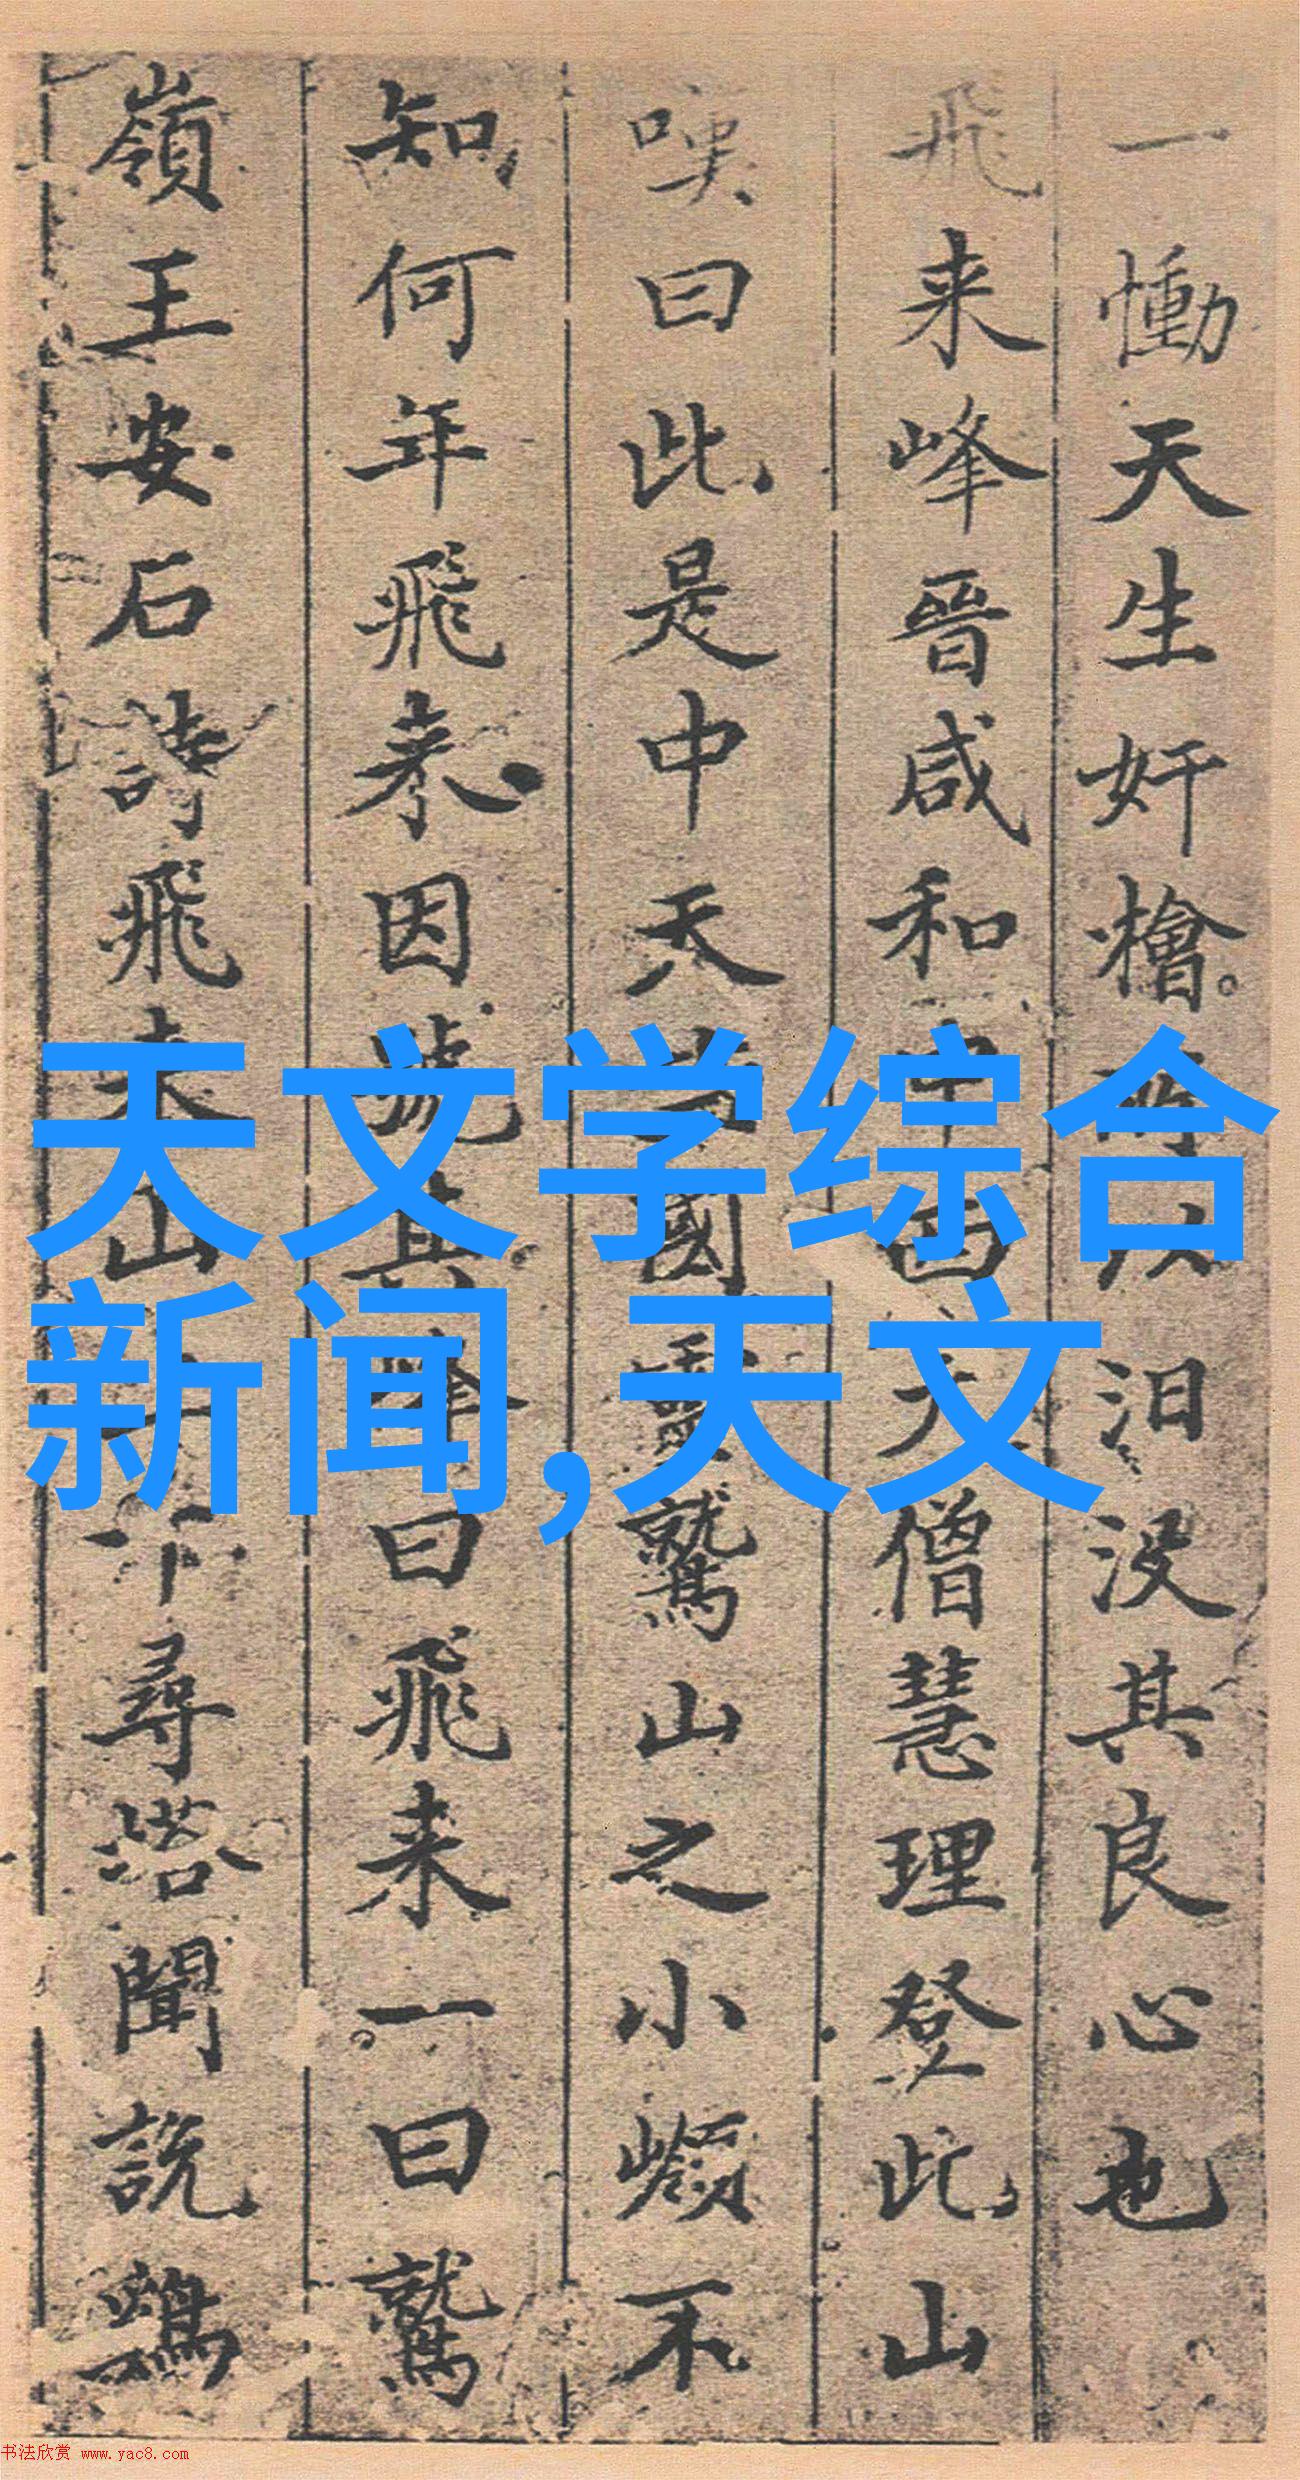 一慟天生奸檜所以汨没其良心也
飛来峰晉咸和中西天僧慧理登此山
嘆曰此是中天竺國靈鷲山之小嶺不
知何年飛来因號其峰曰飛来一曰鷲
嶺王安石詩飛来山上千尋塔聞説鷄
天文学综合
新闻,天文
书法欣赏 www.yac8.com